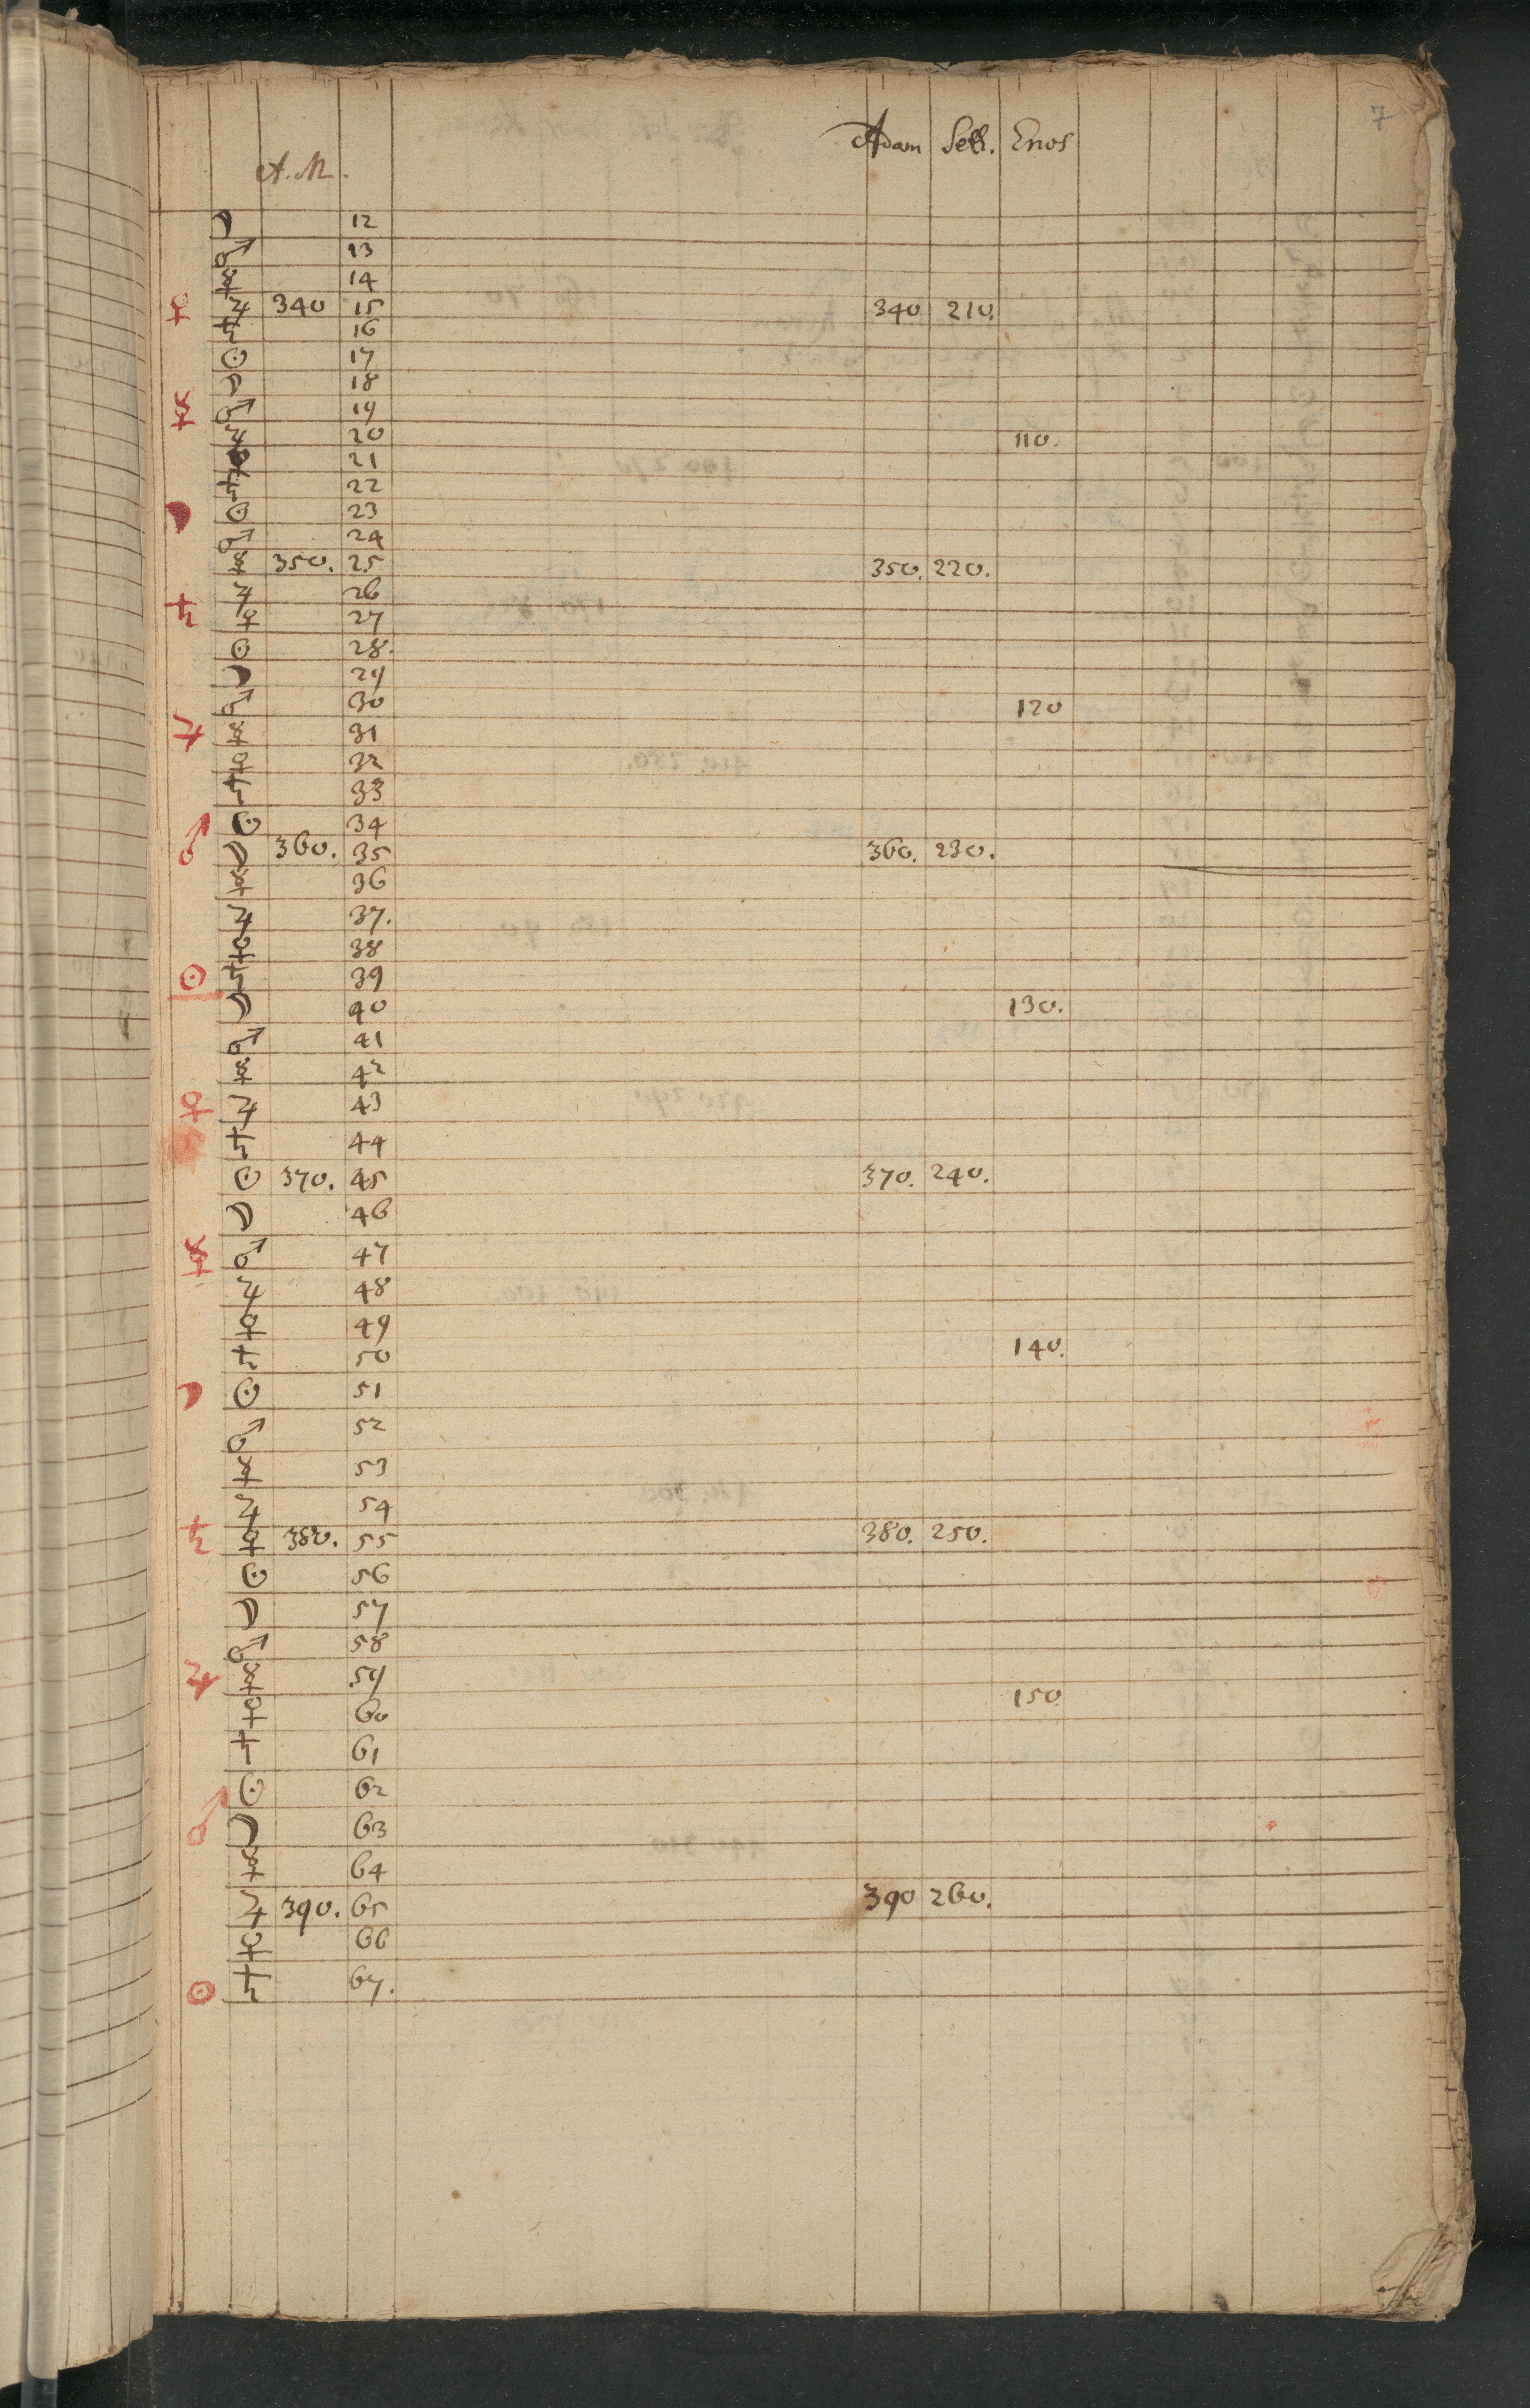 7
A. M. Adam Seth. Enos
☽ 12
♂ 13
☿ 14
♀ ♃ 340 15 340 210.
♄ 16
☉ 17
☽ 18
☿ ♂ 19
♃ 20 110.
♀ 21
♄ 22
☽ ☉ 23
♂ 24
☿ 350. 25 350. 220.
♄ ♃ 26
♀ 27
☉ 28.
☽ 29
♂ 30 120
♃ ☿ 31
♀ 32
♄ 33
♂ ☉ 34
☽ 360. 35 360. 230.
☿ 36
♃ 37.
♀ 38
☉ ♄ 39
☽ 40 130.
♂ 41
☿ 42
♀ ♃ 43
♄ 44
☉ 370. 45 370. 240.
☽ 46
☿ ♂ 47
♃ 48
♀ 49
♄ 50 140.
☽ ☉ 51
♂ 52
☿ 53
♃ 54
♄ ♀ 380. 55 380. 250.
☉ 56
☽ 57
♂ 58
♃ ☿ 59
♀ 60 150.
♄ 61
☉ 62
♂ ☽ 63
☿ 64
♃ 390. 65 390 260.
♀ 66
☉ ♄ 67.